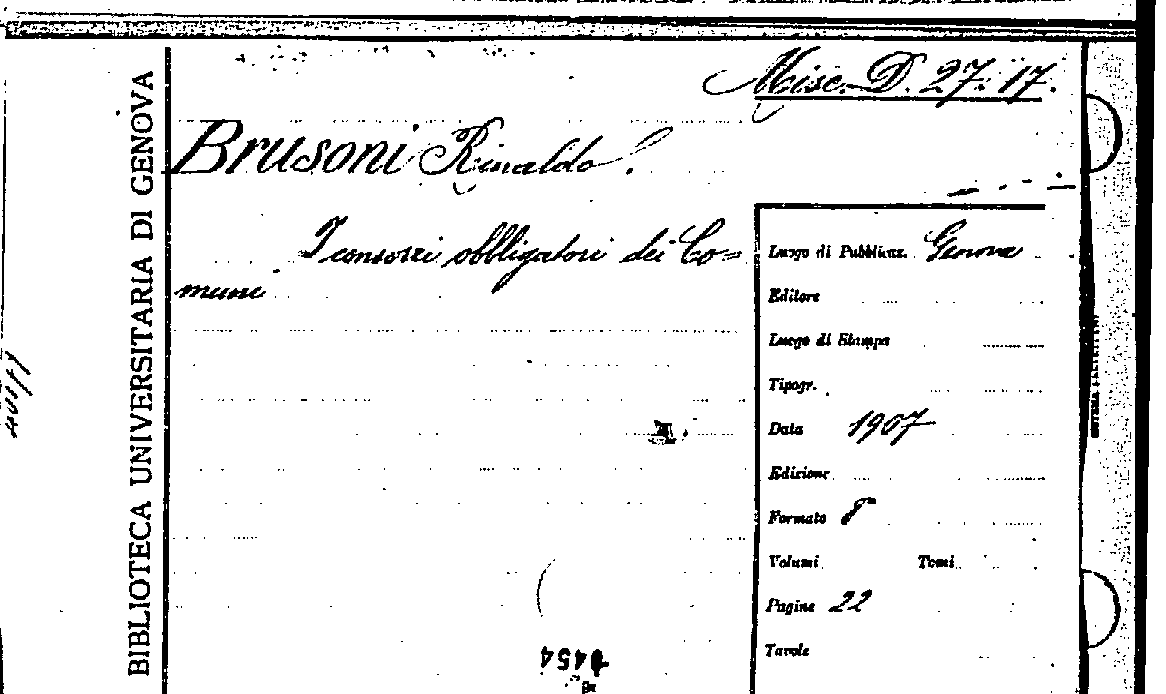 Misc. D. 27. 17.
Brusoni Rinaldo.
I consorzi obbligatori dei Co=
muni
BIBLIOTECA UNIVERSITARIA DI GENOVA
Luogo di Pubblicaz. Genova
Editore
Luogo di Stampa
Tipogr.
Data 1907
Edizione
Formato 8°
Volumi Tomi
Pagine 22
Tavole